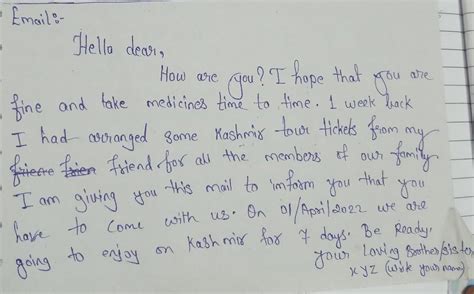 Email:-
Hello dear,
How are you? I hope that you are
fine and take medicines time to time. 1 week back
I had arranged some Kashmir tour tickets from my
friend for all the members of our family
I am giving you this mail to imform you that you
have to come with us. On 01/April2022 we are
going to enjoy on Kashmir for 7 days. Be Ready.
your Loving Brother/sister
xyz (write your name)